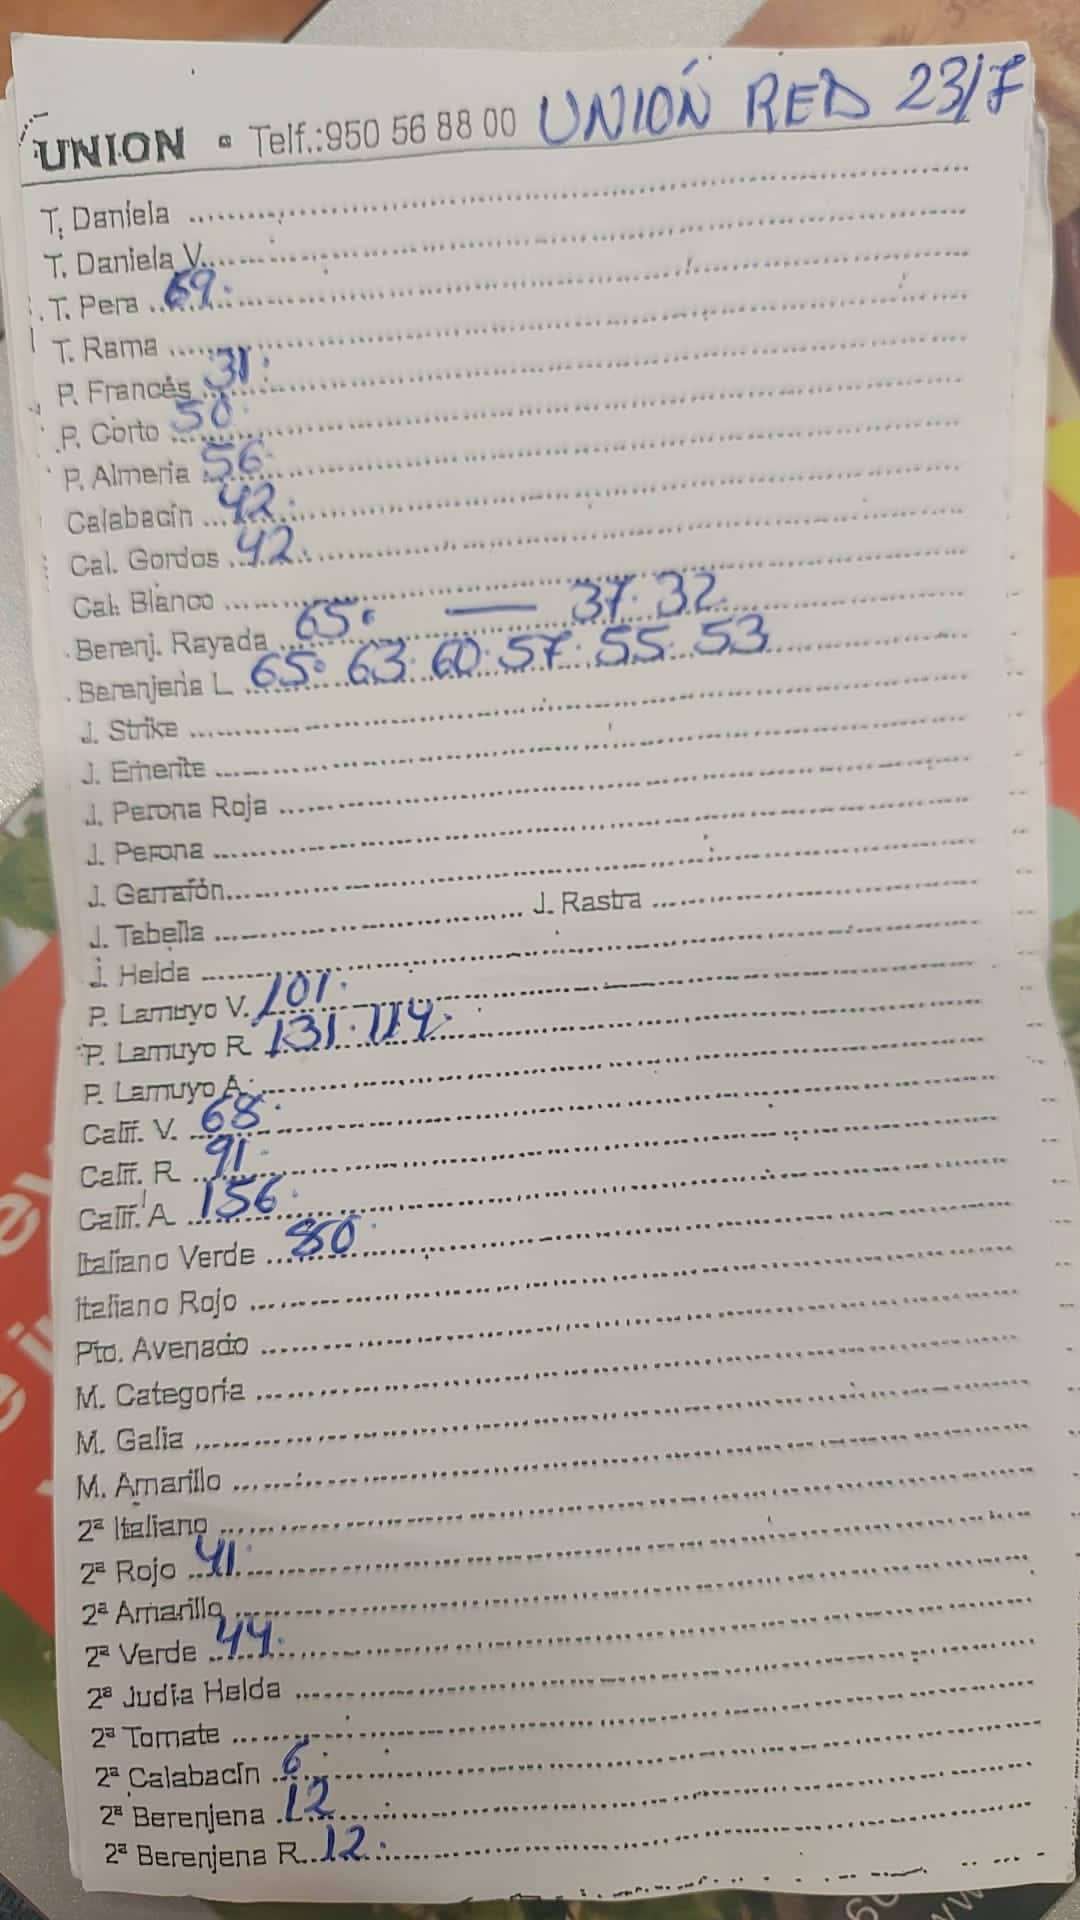 UNION ▫ Telf.:950 56 88 00 UNIÓN RED 23/7
T. Daniela
T. Daniela V.
T. Pera 69.
T. Rama
P. Francés 31.
P. Corto 50.
P. Almeria 56.
Calabacín 42.
Cal. Gordos 42.
Cal. Blanco
Berenj. Rayada 65. — 37. 32.
Berenjena L 65. 63. 60. 57. 55. 53
J. Strike
J. Emerite
J. Perona Roja
J. Perona
J. Garrafón
J. Tabella J. Rastra
J. Helda
P. Lamuyo V. 101.
P. Lamuyo R 131. 114.
P. Lamuyo A.
Calif. V. 68.
Calif. R 91.
Calif. A 156.
Italiano Verde 80.
Italiano Rojo
Pto. Avenado
M. Categoría
M. Galia
M. Amarillo
2ª Italiano
2ª Rojo 41.
2ª Amarillo
2ª Verde 44.
2ª Judía Helda
2ª Tomate
2ª Calabacín 6.
2ª Berenjena 12
2ª Berenjena R 12.